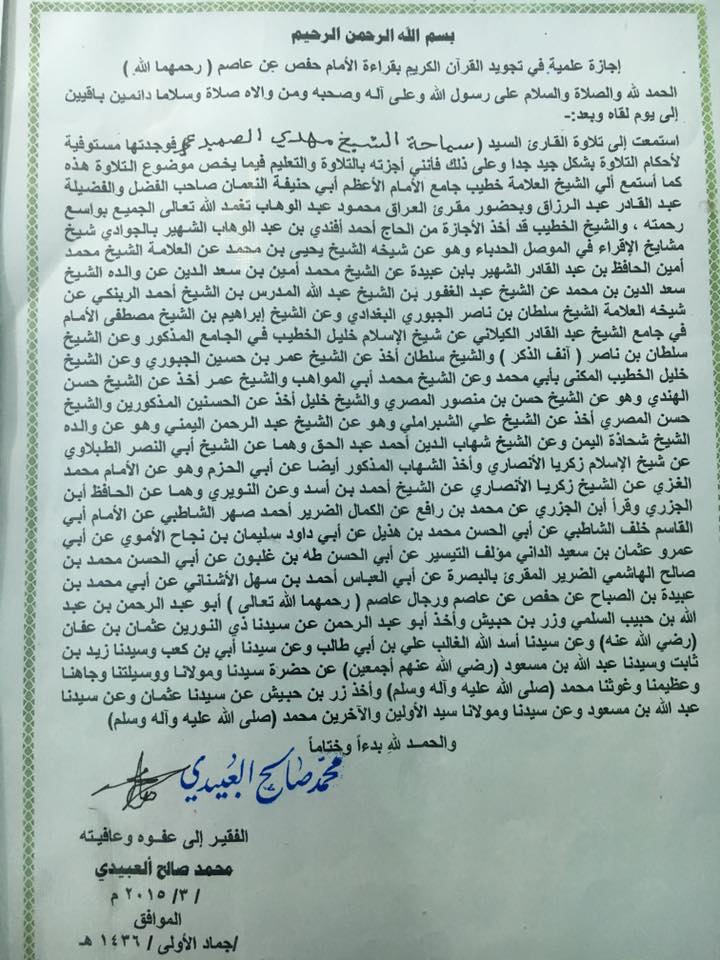 بسم الله الرحمن الرحيم
إجازة علمية في تجويد القرآن الكريم بقراءة الأمام حفص عن عاصم ( رحمهما الله )
الحمد لله والصلاة والسلام على رسول الله وعلى آله وصحبه ومن والاه صلاة وسلاما دائمين باقيين
إلى يوم لقاه وبعد:-
استمعت إلى تلاوة القارئ السيد ( سماحة الشيخ مهدي الصميدعي فوجدتها مستوفية
لأحكام التلاوة بشكل جيد جدا وعلى ذلك فأنني أجزته بالتلاوة والتعليم فيما يخص موضوع التلاوة هذه
كما أستمع ألي الشيخ العلامة خطيب جامع الأمام الأعظم أبي حنيفة النعمان صاحب الفضل والفضيلة
عبد القادر عبد الرزاق وبحضور مقرئ العراق محمود عبد الوهاب تغمد الله تعالى الجميع بواسع
رحمته ، والشيخ الخطيب قد أخذ الأجازة من الحاج أحمد أفندي بن عبد الوهاب الشهير بالجوادي شيخ
مشايخ الإقراء في الموصل الحدباء وهو عن شيخه الشيخ يحيى بن محمد عن العلامة الشيخ محمد
أمين الحافظ بن عبد القادر الشهير بابن عبيدة عن الشيخ محمد أمين بن سعد الدين عن والده الشيخ
سعد الدين بن محمد عن الشيخ عبد الغفور بن الشيخ عبد الله المدرس بن الشيخ أحمد الربنكي عن
شيخه العلامة الشيخ سلطان بن ناصر الجبوري البغدادي وعن الشيخ إبراهيم بن الشيخ مصطفى الأمام
في جامع الشيخ عبد القادر الكيلاني عن شيخ الإسلام خليل الخطيب في الجامع المذكور وعن الشيخ
سلطان بن ناصر ( آنف الذكر ) والشيخ سلطان أخذ عن الشيخ عمر بن حسين الجبوري وعن الشيخ
خليل الخطيب المكنى بأبي محمد وعن الشيخ محمد أبي المواهب والشيخ عمر أخذ عن الشيخ حسن
الهندي وهو عن الشيخ حسن بن منصور المصري والشيخ خليل أخذ عن الحسنين المذكورين والشيخ
حسن المصري أخذ عن الشيخ علي الشبراملي وهو عن الشيخ عبد الرحمن اليمني وهو عن والده
الشيخ شحاذة اليمن وعن الشيخ شهاب الدين أحمد عبد الحق وهما عن الشيخ أبي النصر الطبلاوي
عن شيخ الإسلام زكريا الأنصاري وأخذ الشهاب المذكور أيضا عن أبي الحزم وهو عن الأمام محمد
الغزي عن الشيخ زكريا الأنصاري عن الشيخ أحمد بن أسد وعن النويري وهما عن الحافظ أبن
الجزري وقرأ أبن الجزري عن محمد بن رافع عن الكمال الضرير أحمد صهر الشاطبي عن الأمام أبي
القاسم خلف الشاطبي عن أبي الحسن محمد بن هذيل عن أبي داود سليمان بن نجاح الأموي عن أبي
عمرو عثمان بن سعيد الداني مؤلف التيسير عن أبي الحسن طه بن غلبون عن أبي الحسن محمد بن
صالح الهاشمي الضرير المقرئ بالبصرة عن أبي العباس أحمد بن سهل الأشناني عن أبي محمد بن
عبيدة بن الصباح عن حفص عن عاصم ورجال عاصم ( رحمهما الله تعالى ) أبو عبد الرحمن بن عبد
الله بن حبيب السلمي وزر بن حبيش وأخذ أبو عبد الرحمن عن سيدنا ذي النورين عثمان بن عفان
(رضي الله عنه) وعن سيدنا أسد الله الغالب علي بن أبي طالب وعن سيدنا أبي بن كعب وسيدنا زيد بن
ثابت وسيدنا عبد الله بن مسعود (رضي الله عنهم أجمعين) عن حضرة سيدنا ومولانا ووسيلتنا وجاهنا
وعظيمنا وغوثنا محمد (صلى الله عليه وآله وسلم) وأخذ زر بن حبيش عن سيدنا عثمان وعن سيدنا
عبد الله بن مسعود وعن سيدنا ومولانا سيد الأولين والآخرين محمد (صلى الله عليه وآله وسلم)
والحمد لله بدءاً وختاماً
محمد صالح العبيدي
الفقير إلى عفوه وعافيته
محمد صالح ألعبيدي
/ ٣/ ٢٠١٥ م
الموافق
/جماد الأولى / ١٤٣٦ هـ